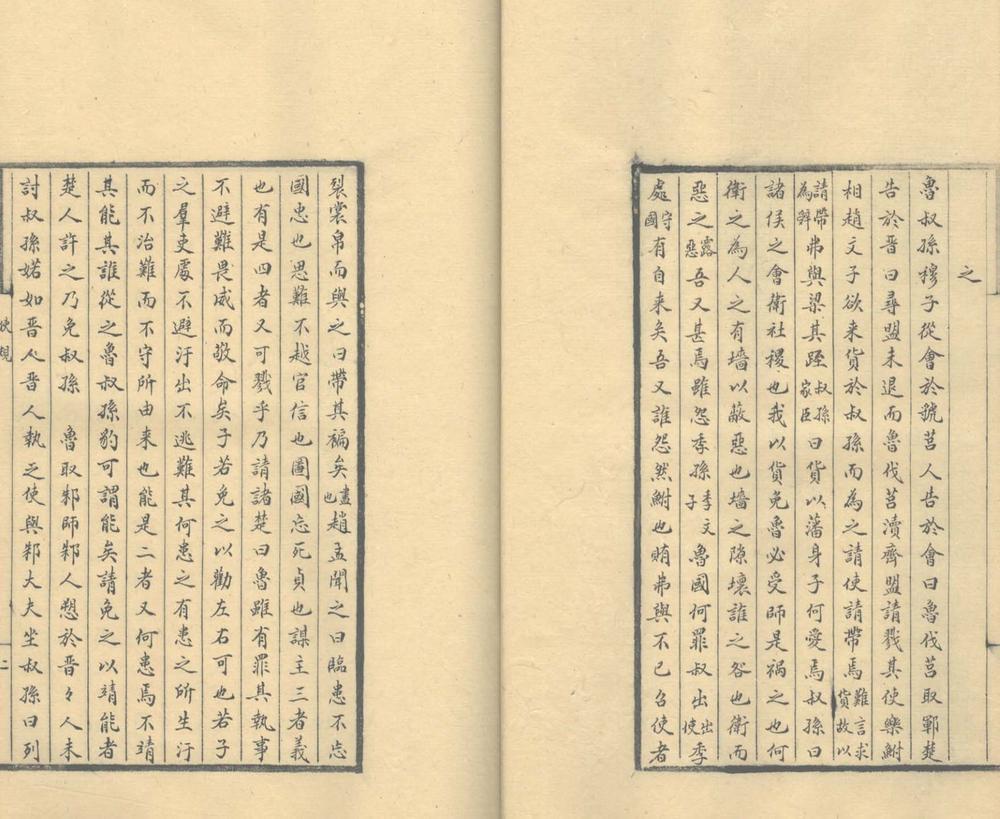 之
魯叔孫穆子從會於虢莒人告於會曰魯伐莒取鄆楚
告於晋曰尋盟未退而魯伐莒瀆齊盟請戮其使樂鮒
相趙文子欲来貨於叔孫而為之請使請帶焉難言求貨故以
請帶為辤弗與梁其踁叔孫家臣曰貨以藩身子何愛焉叔孫曰
諸侯之會衛社稷也我以貨免魯必受師是禍之也何
衛之為人之有墻以蔽惡也墻之隙壞誰之咎也衛而
惡之露惡吾又甚焉雖怨季孫季文子魯國何罪叔出出使季
處守國有自来矣吾又誰怨然鮒也賄弗與不已召使者
裂裳帛而與之曰帶其褊矣盡也趙孟聞之曰臨患不忘
國忠也思難不越官信也圖國忘死貞也謀主三者義
也有是四者又可戮乎乃請諸楚曰魯雖有罪其執事
不避難畏威而敬命矣子若免之以勸左右可也若子
之羣吏處不避汙出不逃難其何患之有患之所生汙
而不治難而不守所由来也能是二者又何患焉不靖
其能其誰從之魯叔孫豹可謂能矣請免之以靖能者
楚人許之乃免叔孫 魯取邾師邾人愬於晋々人来
討叔孫婼如晋人晋人執之使與邾大夫坐叔孫曰列
二